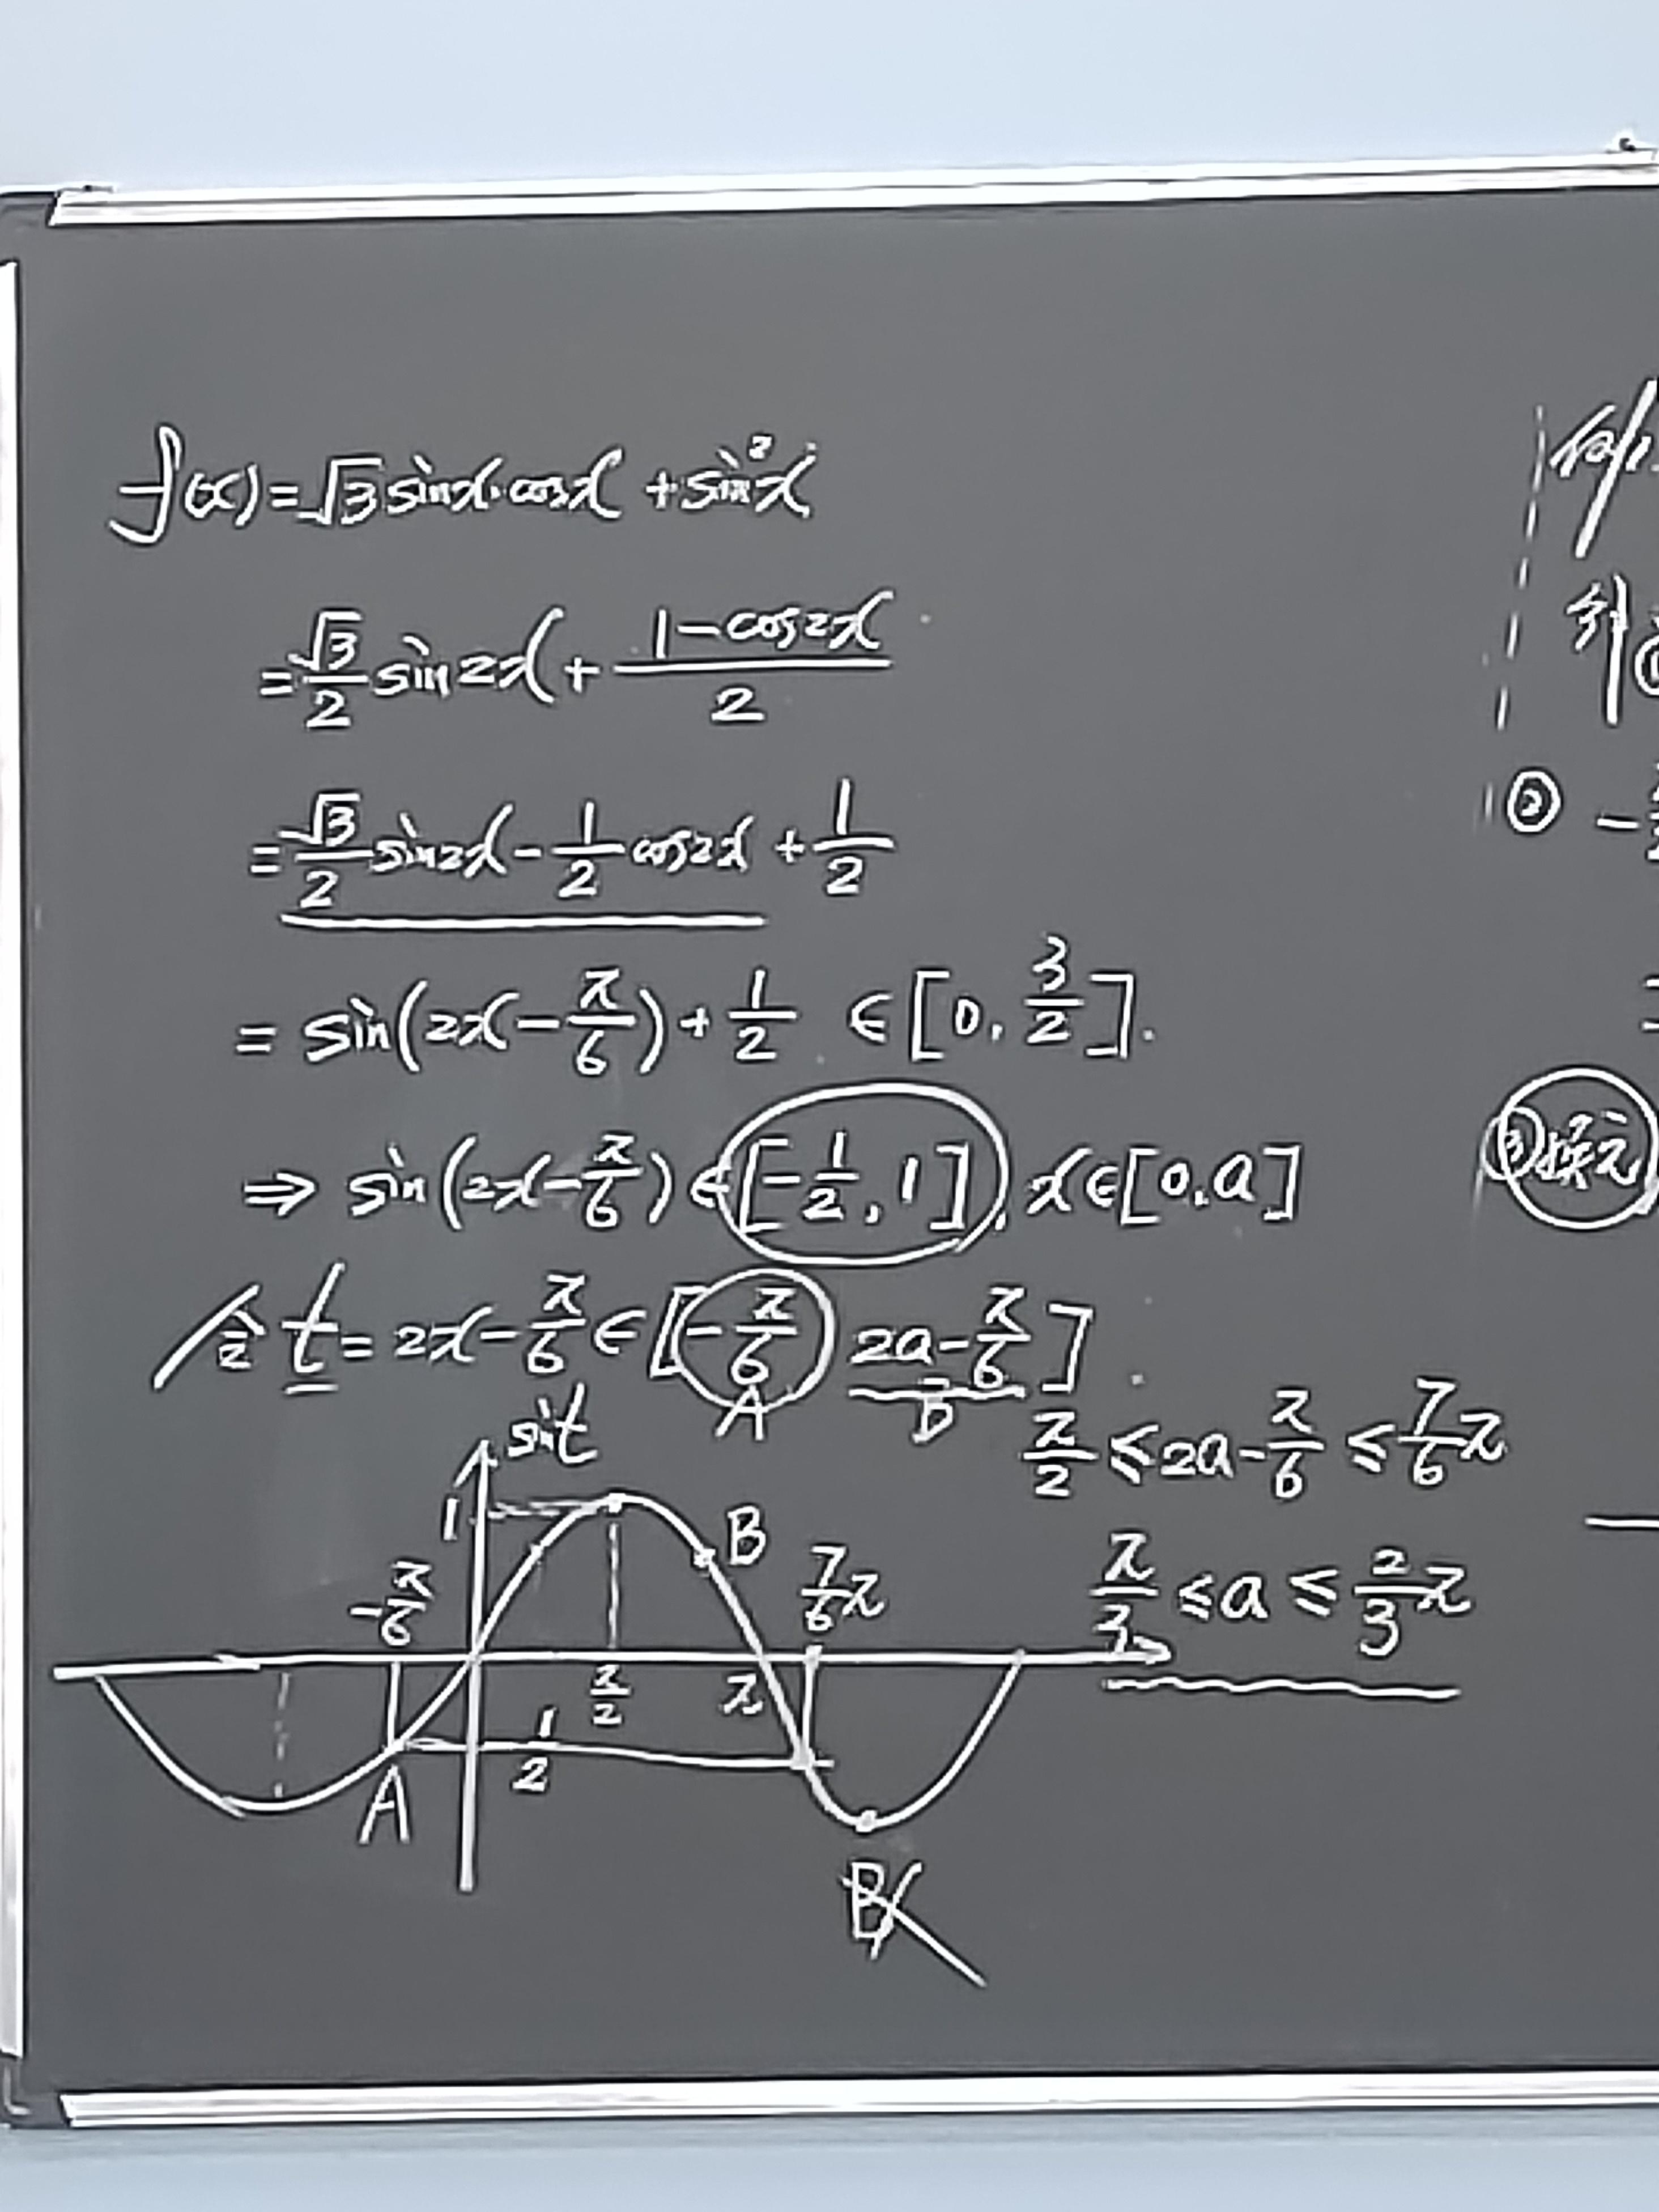 f(x)=√3sinx·cosx+sin²x
=√3/2 sin2x+(1-cos2x)/2
=√3/2 sin2x-1/2 cos2x+1/2
=sin(2x-π/6)+1/2 ∈[0,3/2].
⇒sin(2x-π/6)∈[-1/2,1],x∈[0,a]
令t=2x-π/6∈[-π/6 2a-π/6]
A B
π/2≤2a-π/6≤7/6π
π/3≤a≤2/3π
sint
1
B
-π/6
7/6π
π/2
π
1/2
A
B
例
②
换元